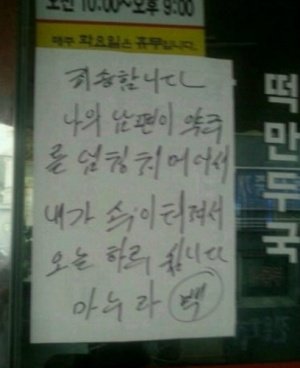 오전 10:00~오후 9:00
매주 화요일은 휴무입니다.
죄송합니다
나의 남편이 약주
를 엄청 처먹어서
내가 속이 터져서
오늘 하루 쉽니다
마누라 백
떡만두국